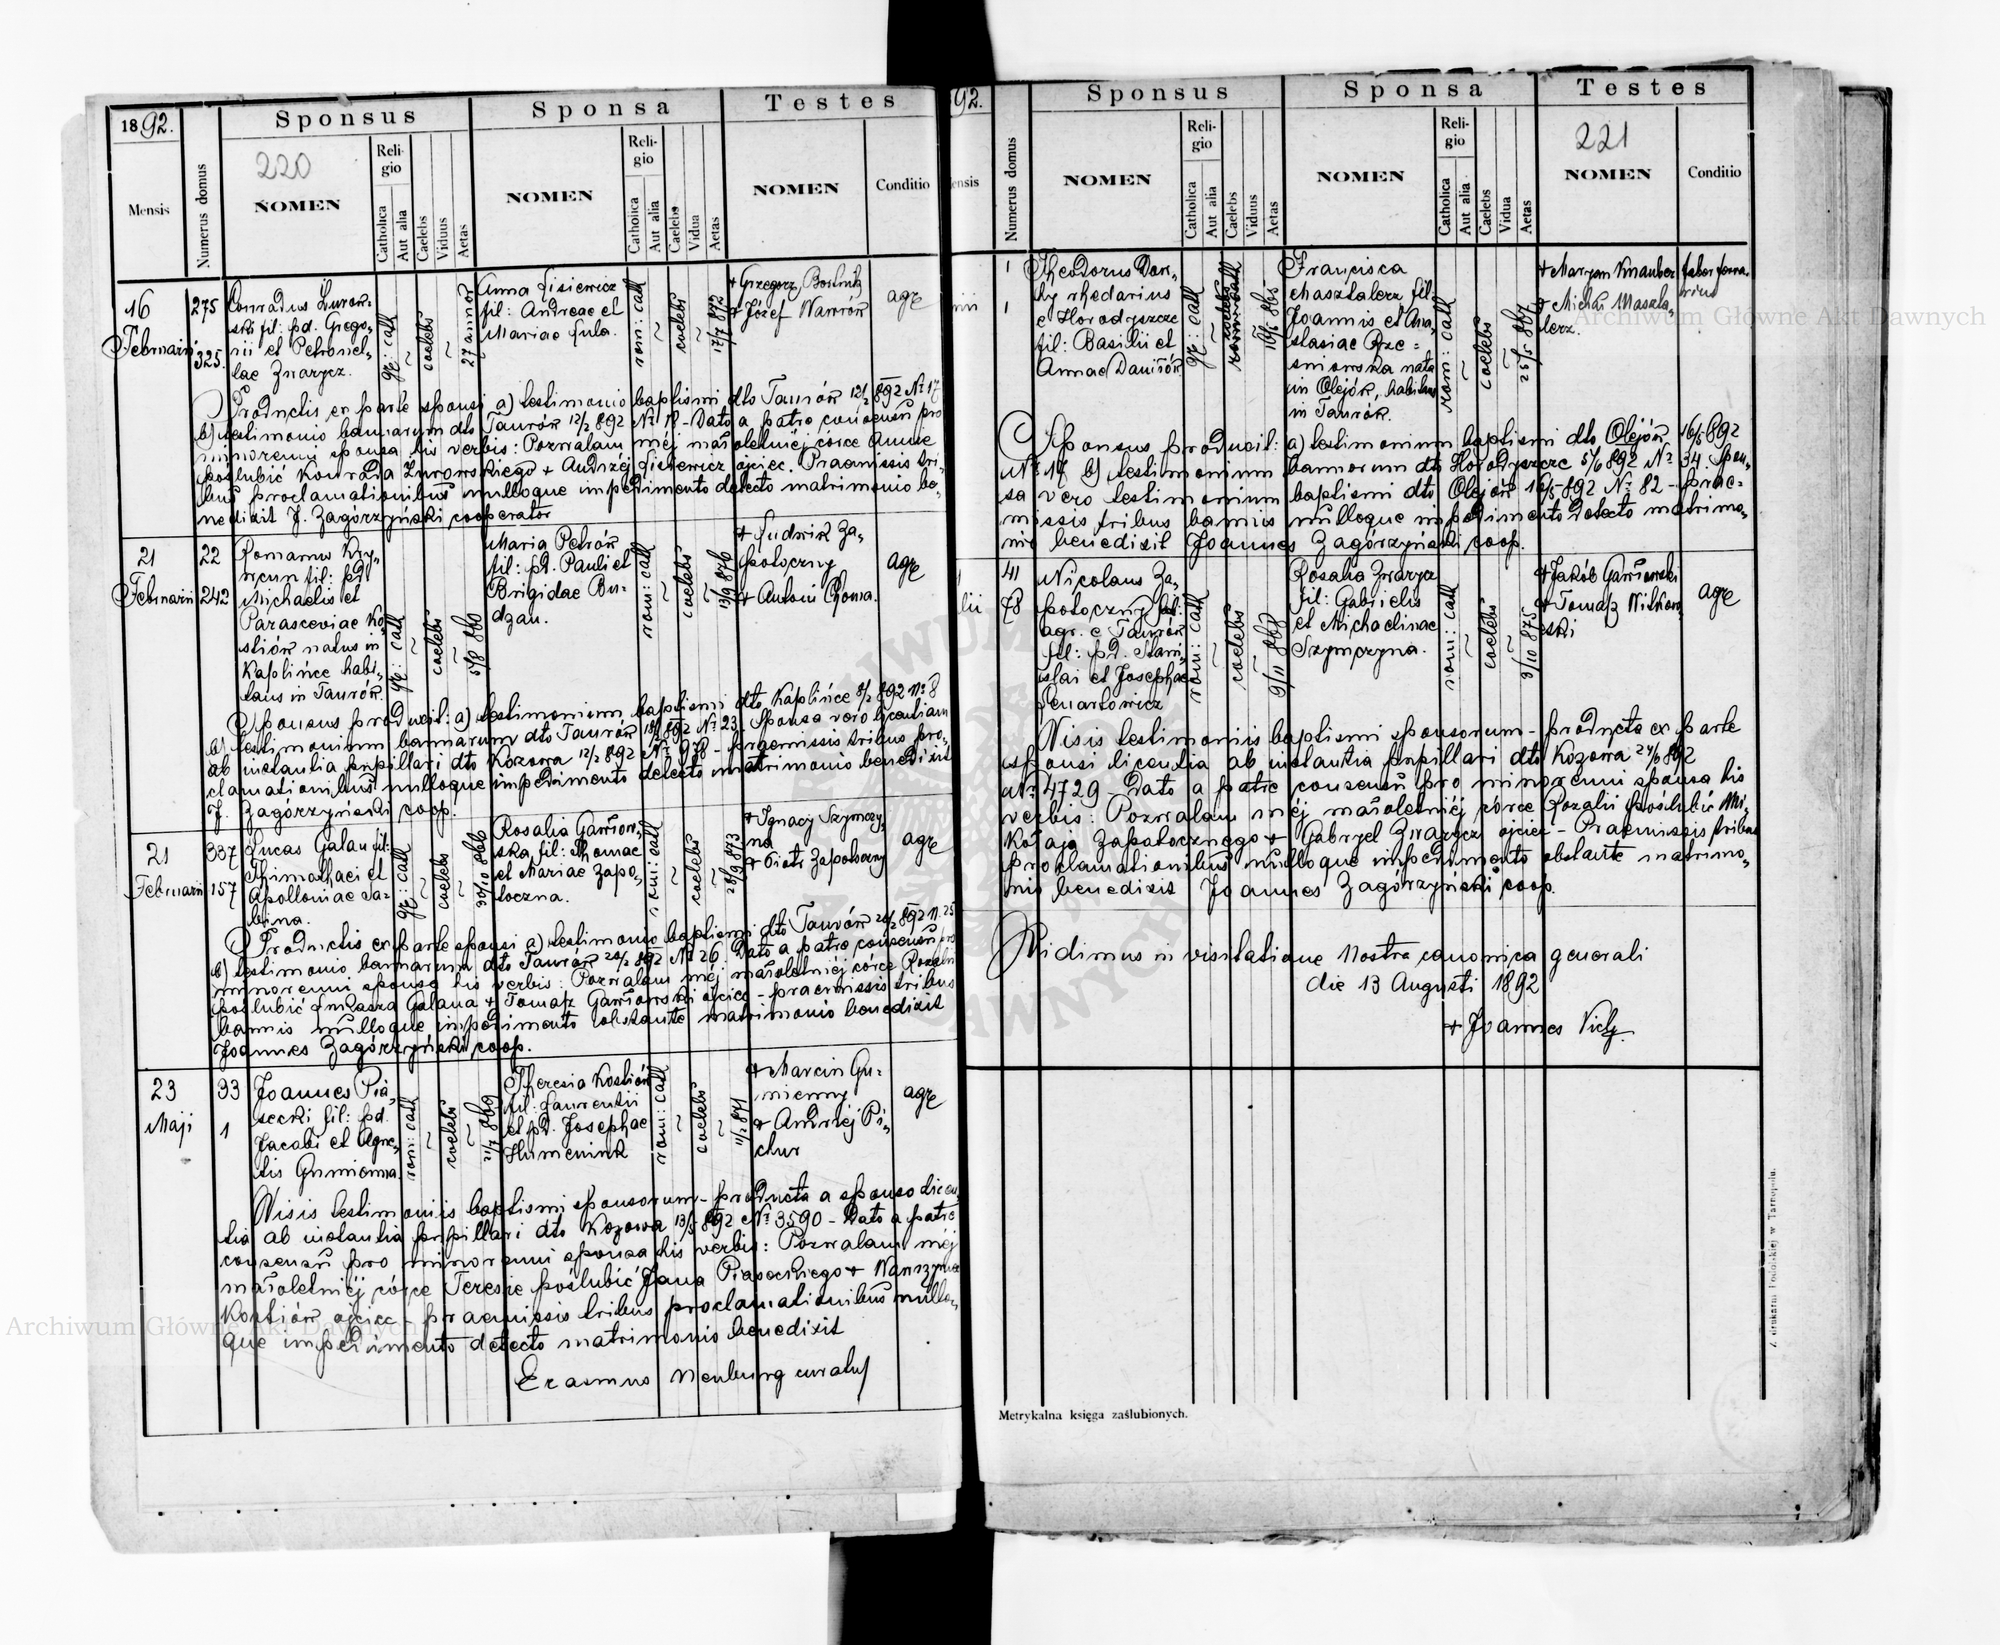 1892.
Sponsus
Sponsa
Testes
220
Mensis
Numerus domus
NOMEN
Religio
Catholica
Aut alia
Caelebs
Viduus
Aetas
NOMEN
Religio
Catholica
Aut alia
Caelebs
Vidua
Aetas
NOMEN
Conditio
16
Februarii
275
325.
Conradus Żurow-
ski fil: pd. Grego-
rii et Petronel-
lae Zwarycz.
gr: cath
coelebs
27 annor
Anna Lisiewicz
fil: Andreae et
Mariae Fula.
rom: cath
coelebs
17/7 872
+ Grzegorz
+ Józef Wawrów
agr
Productis ex parte sponsi a) testimonio baptismi dto Taurów 12/2 892 Nr 17
b) testimonio bannorum dto Taurów 12/2 892 Nr 18 - Dato a patre consensu pro
minorenni sponsa his verbis: Pozwalam méj małoletniéj córce Annie
poślubić Konrada Żurowskiego + Andrzéj Lisiewicz ojciec. Praemissis tri-
bus proclamationibus nulloque impedimento detecto matrimonio be-
nedixit J. Zagórzyński cooperator
21
Februarii
22
242
Romanus Kry-
wcun fil: pd
Michaelis et
Parasceviae Ko-
stiów natus in
Kaplińce habi-
tans in Taurów.
gr: cath
coelebs
5/8 860
Maria Petrów
fil: pd. Pauli et
Brigidae Bu-
dzan.
rom: cath
coelebs
13/9 876
+ Ludwik Za-
potoczny
+ Antoni Choma.
agr
Sponsus produxit: a) testimonium baptismi dto Kaplińce 8/2 892 Nr 8
b) testimonium bannorum dto Taurów 892 Nr 23. Sponsa vero licentiam
ab instantia pupillari dto Kozowa 12/2 892 Nr 978 - praemissis tribus pro-
clamationibus nulloque impedimento detecto matrimonio benedixit
J. Zagórzyński coop.
21
Februarii
337
157
Lucas Galan fil:
Thimothaei et
Apolloniae Sa-
bina.
gr: cath
coelebs
30/10 866
Rosalia Gawrow-
ska fil: Thomae
et Mariae Zapo-
toczna.
rom: cath
coelebs
28/9 873
+ Ignacy Szymczy-
na
+ Piotr Zapotoczny
agr
Productis ex parte sponsi a) testimonio baptismi dto Taurów 20/2 892 N. 25
b) testimonio bannorum dto Taurów 20/2 892 Nr 26. Dato a patre consensu pro
minorenni sponsa his verbis: Pozwalam méj małoletniéj córce Rozalii
poślubić Łukasza Galana + Tomasz Gawrowski ojciec - praemissis tribus
bannis nulloque impedimento obstante matrimonio benedixit
Joannes Zagórzyński coop.
23
Maji
93
1
Joannes Pia-
secki fil: pd.
Jacobi et Agne-
tis Gumienna.
rom: cath
coelebs
21/7 869
Theresia Kostiów
fil: Laurentii
et pd. Josephae
Humeniuk
rom: cath
coelebs
11/2 871
+ Marcin Gu-
mienny
+ Andrzéj Pi-
chur
agr
Visis testimoniis baptismi sponsorum - producta a sponso licen-
tia ab instantia pupillari dto Kozowa 13/5 892 Nr 3590 - Dato a patre
consensu pro minorenni sponsa his verbis: Pozwalam méj
małoletniéj córce Teresie poślubić Jana Piaseckiego + Wawrzyniec
Kostiów ojciec - praemissis tribus proclamationibus nullo-
que impedimento detecto matrimonio benedixit
Erasmus Neuburg curatus
92.
Sponsus
Sponsa
Testes
221
Numerus domus
NOMEN
Religio
Catholica
Aut alia
Caelebs
Viduus
Aetas
NOMEN
Religio
Catholica
Aut alia
Caelebs
Vidua
Aetas
NOMEN
Conditio
1
1
Theodorus
rhedarius
e Horodyszcze
fil: Basilii et
Annae Daniłów
gr: cath
coelebs
16/5 865
Francisca
Masztalerz fil:
Joannis et Ana-
stasiae
nata
in Olejów, habitans
in Taurów.
rom: cath
coelebs
25/5 867
+ Maryan Knauber
+ Michał Maszta-
lerz.
faber ferra-
rius
Sponsus produxit: a) testimonium baptismi dto Olejów 16/5 892
Nr 17 b) testimonium bannorum dto Horodyszcze 5/6 892 Nr 34. Spon-
sa vero testimonium baptismi dto Olejów 16/5 892 Nr 82 - prae-
missis tribus bannis nulloque impedimento detecto matrimo-
nio benedixit Joannes Zagórzyński coop.
41
78
Nicolaus Za-
potoczny
agr. e Taurów
fil: pd. Stani-
slai et Josephae
Lenartowicz
rom: cath
coelebs
9/11 868
Rosalia Zwarycz
fil: Gabrielis
et Michaelinae
Szymczyna.
rom: cath
coelebs
3/10 875
+ Jakób Gawrowski
+ Tomasz Witkow-
ski
agr
Visis testimoniis baptismi sponsorum - producta ex parte
sponsi licentia ab instantia pupillari dto Kozowa 24/6 892
Nr 4729 - Dato a patre consensu pro minorenni sponsa his
verbis: Pozwalam méj małoletniéj córce Rozalii poślubić Mi-
kołaja Zapotocznego + Gabryel Zwarycz ojciec - Praemissis tribus
proclamationibus nulloque impedimento obstante matrimo-
nio benedixit Joannes Zagórzyński coop.
Vidimus in visitatione Nostra canonica generali
die 13 Augusti 1892
+ Joannes
Metrykalna księga zaślubionych.
Z drukarni Podolskiej w Tarnopolu.
Archiwum Główne Akt Dawnych
Archiwum Główne Akt Dawnych